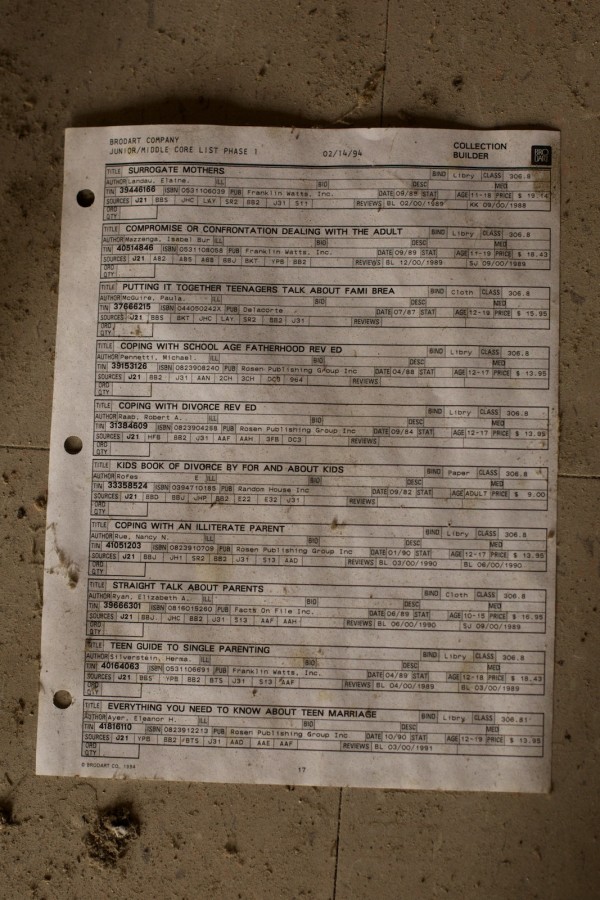 BRODART COMPANY
JUNIOR/MIDDLE CORE LIST PHASE 1 02/14/94 COLLECTION BUILDER BRO DART
TITLE SURROGATE MOTHERS BIND Libry CLASS 306.8
AUTHOR Landau, Elaine. ILL BIO DESC MED
TIN 39446166 ISBN 0531106039 PUB Franklin Watts, Inc. DATE 09/89 STAT AGE 11-18 PRICE $ 19.14
SOURCES J21 BBS JHC LAY SR2 BB2 J31 S11 REVIEWS BL 02/00/1989 KK 09/00/1988
ORD QTY
TITLE COMPROMISE OR CONFRONTATION DEALING WITH THE ADULT BIND Libry CLASS 306.8
AUTHOR Mazzenga, Isabel Bur ILL BIO DESC MED
TIN 40514846 ISBN 0531108058 PUB Franklin Watts, Inc. DATE 09/89 STAT AGE 11-19 PRICE $ 18.43
SOURCES J21 A82 A85 A88 BBJ BKT YPB BB2 REVIEWS BL 12/00/1989 SJ 09/00/1989
ORD QTY
TITLE PUTTING IT TOGETHER TEENAGERS TALK ABOUT FAMI BREA BIND Cloth CLASS 306.8
AUTHOR McGuire, Paula. ILL BIO DESC MED
TIN 37666215 ISBN 044050242X PUB Delacorte DATE 07/87 STAT AGE 12-18 PRICE $ 15.95
SOURCES J21 BBS BKT JHC LAY SR2 BB2 J31 REVIEWS
ORD QTY
TITLE COPING WITH SCHOOL AGE FATHERHOOD REV ED BIND Libry CLASS 306.8
AUTHOR Pennetti, Michael. ILL BIO DESC MED
TIN 39153126 ISBN 0823908240 PUB Rosen Publishing Group Inc DATE 04/88 STAT AGE 12-17 PRICE $ 13.95
SOURCES J21 BB2 J31 AAN 2CH 3CH DC9 964 REVIEWS
ORD QTY
TITLE COPING WITH DIVORCE REV ED BIND Libry CLASS 306.8
AUTHOR Raab, Robert A. ILL BIO DESC MED
TIN 31384609 ISBN 0823904288 PUB Rosen Publishing Group Inc DATE 09/84 STAT AGE 12-17 PRICE $ 13.95
SOURCES J21 HFB BB2 J31 AAF AAH 3FB DC3 REVIEWS
ORD QTY
TITLE KIDS BOOK OF DIVORCE BY FOR AND ABOUT KIDS BIND Paper CLASS 306.8
AUTHOR Rofes E ILL BIO DESC MED
TIN 33358524 ISBN 0394710185 PUB Random House Inc DATE 09/82 STAT AGE ADULT PRICE $ 9.00
SOURCES J21 BBD BBJ JHP BB2 E22 E32 J31 REVIEWS
ORD QTY
TITLE COPING WITH AN ILLITERATE PARENT BIND Libry CLASS 306.8
AUTHOR Rue, Nancy N. ILL BIO DESC MED
TIN 41051203 ISBN 0823910709 PUB Rosen Publishing Group Inc DATE 01/90 STAT AGE 12-17 PRICE $ 13.95
SOURCES J21 BBJ JH1 SR1 BB2 J31 S13 AAD REVIEWS BL 03/00/1990 BL 06/00/1990
ORD QTY
TITLE STRAIGHT TALK ABOUT PARENTS BIND Cloth CLASS 306.8
AUTHOR Ryan, Elizabeth A. ILL BIO DESC MED
TIN 39666301 ISBN 0816015260 PUB Facts On File Inc. DATE 06/89 STAT AGE 10-15 PRICE $ 16.95
SOURCES J21 BBJ JHC BB2 J31 S13 AAF AAH REVIEWS BL 06/00/1990 SJ 09/00/1989
ORD QTY
TITLE TEEN GUIDE TO SINGLE PARENTING BIND Libry CLASS 306.8
AUTHOR Silverstein, Herma. ILL BIO DESC MED
TIN 40164063 ISBN 0531106691 PUB Franklin Watts, Inc. DATE 04/89 STAT AGE 12-18 PRICE $ 18.43
SOURCES J21 BBS YPB BB2 BTS J31 S13 AAF REVIEWS BL 04/00/1989 BL 03/00/1989
ORD QTY
TITLE EVERYTHING YOU NEED TO KNOW ABOUT TEEN MARRIAGE BIND Libry CLASS 306.81
AUTHOR Ayer, Eleanor H. ILL BIO DESC MED
TIN 41816110 ISBN 0823912213 PUB Rosen Publishing Group Inc DATE 10/90 STAT AGE 12-19 PRICE $ 13.95
SOURCES J21 YPB BB2 BTS J31 AAD AAE AAF REVIEWS BL 03/00/1991
ORD QTY
© BRODART CO, 1994 17